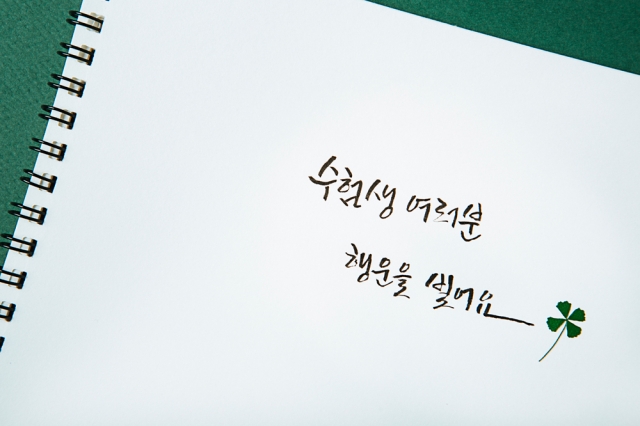 수험생 여러분
행운을 빌어요